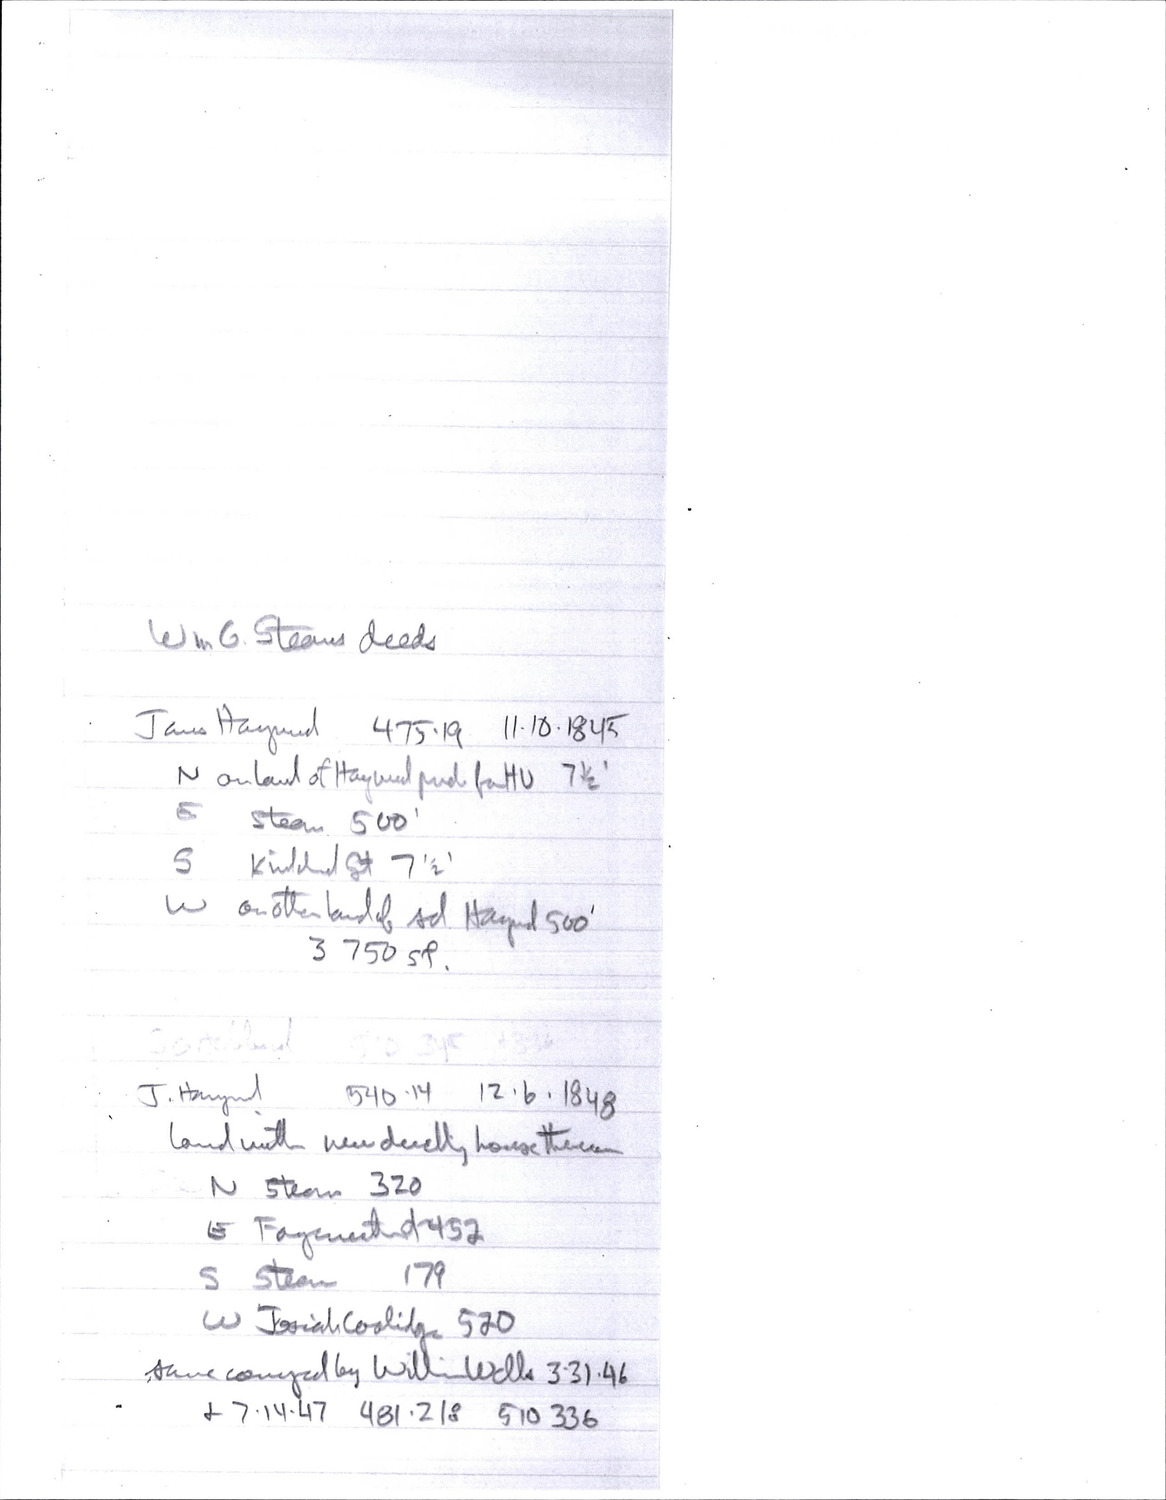 Wm G. Stearns deeds
James Hayward 475·19 11·10·1845
N on land of Hayward purch for HU 7½'
E Stearns 500'
S Kirkland St 7½'
W on other land of sd Hayward 500'
3 750 sf.
J. Hayward 540·14 12·6·1848
land with new dwelling house thereon
N Stearns 320
E 452
S Stearns 179
W Josiah Coolidge 520
same conveyed by William Wells 3·31·46
& 7·14·47 481·218 510 336